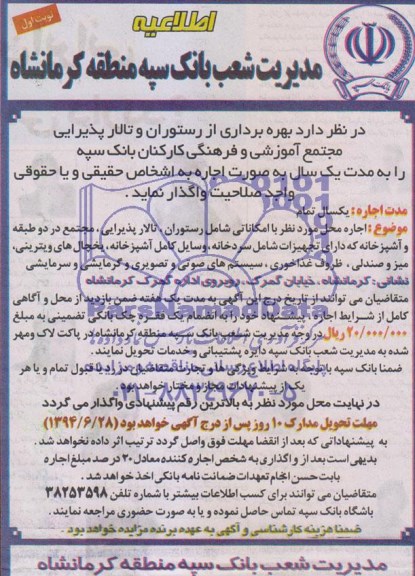 نوبت اول
اطلاعیه
مدیریت شعب بانک سپه منطقه کرمانشاه
در نظر دارد بهره برداری از رستوران و تالار پذیرایی
مجتمع آموزشی و فرهنگی کارکنان بانک سپه
را به مدت یک سال به صورت اجاره به اشخاص حقیقی و یا حقوقی
واجد صلاحیت واگذار نماید.
مدت اجاره: یکسال تمام
موضوع: اجاره محل مورد نظر با امکاناتی شامل رستوران، تالار پذیرایی، مجتمع در دو طبقه
و آشپزخانه که دارای تجهیزات شامل سردخانه، وسایل کامل آشپزخانه، یخچال های ویترینی،
میز و صندلی، ظروف غذاخوری، سیستم های صوتی و تصویری و گرمایشی و سرمایشی
نشانی: کرمانشاه، خیابان گمرک، روبروی اداره گمرک کرمانشاه
متقاضیان می توانند از تاریخ درج این آگهی به مدت یک هفته ضمن بازدید از محل و آگاهی
کامل از شرایط اجاره، پیشنهاد خود را به انضمام یک فقره چک بانکی تضمینی به مبلغ
۲۰/۰۰۰/۰۰۰ ریال در وجه مدیریت شعب بانک سپه منطقه کرمانشاه در پاکت لاک ومهر
شده به مدیریت شعب بانک سپه دایره پشتیبانی و خدمات تحویل نمایند.
ضمنا بانک سپه با توجه به شرایط ویژگی های وتجارب متقاضیان در رد یا قبول تمام و یا هر
یک از پیشنهادات مجاز و مختار خواهد بود.
۰۲۱-۸۸۳۴۹۶۷۰-۵
در نهایت محل مورد نظر به بالاترین رقم پیشنهادی واگذار می گردد
مهلت تحویل مدارک ۱۰ روز پس از درج آگهی خواهد بود (۱۳۹۴/۶/۲۸)
به پیشنهاداتی که بعد از انقضا مهلت فوق واصل گردد ترتیب اثر داده نخواهد شد.
بدیهی است بعد از واگذاری به شخص اجاره کننده معادل ۲۰ درصد مبلغ اجاره
بابت حسن انجام تعهدات ضمانت نامه بانکی اخذ خواهد شد.
متقاضیان می توانند برای کسب اطلاعات بیشتر با شماره تلفن ۳۸۲۵۳۵۹۸
باشگاه بانک سپه تماس حاصل نموده و یا به صورت حضوری مراجعه نمایند.
ضمنا هزینه کارشناسی و آگهی به عهده برنده مزایده خواهد بود.
مدیریت شعب بانک سپه منطقه کرمانشاه